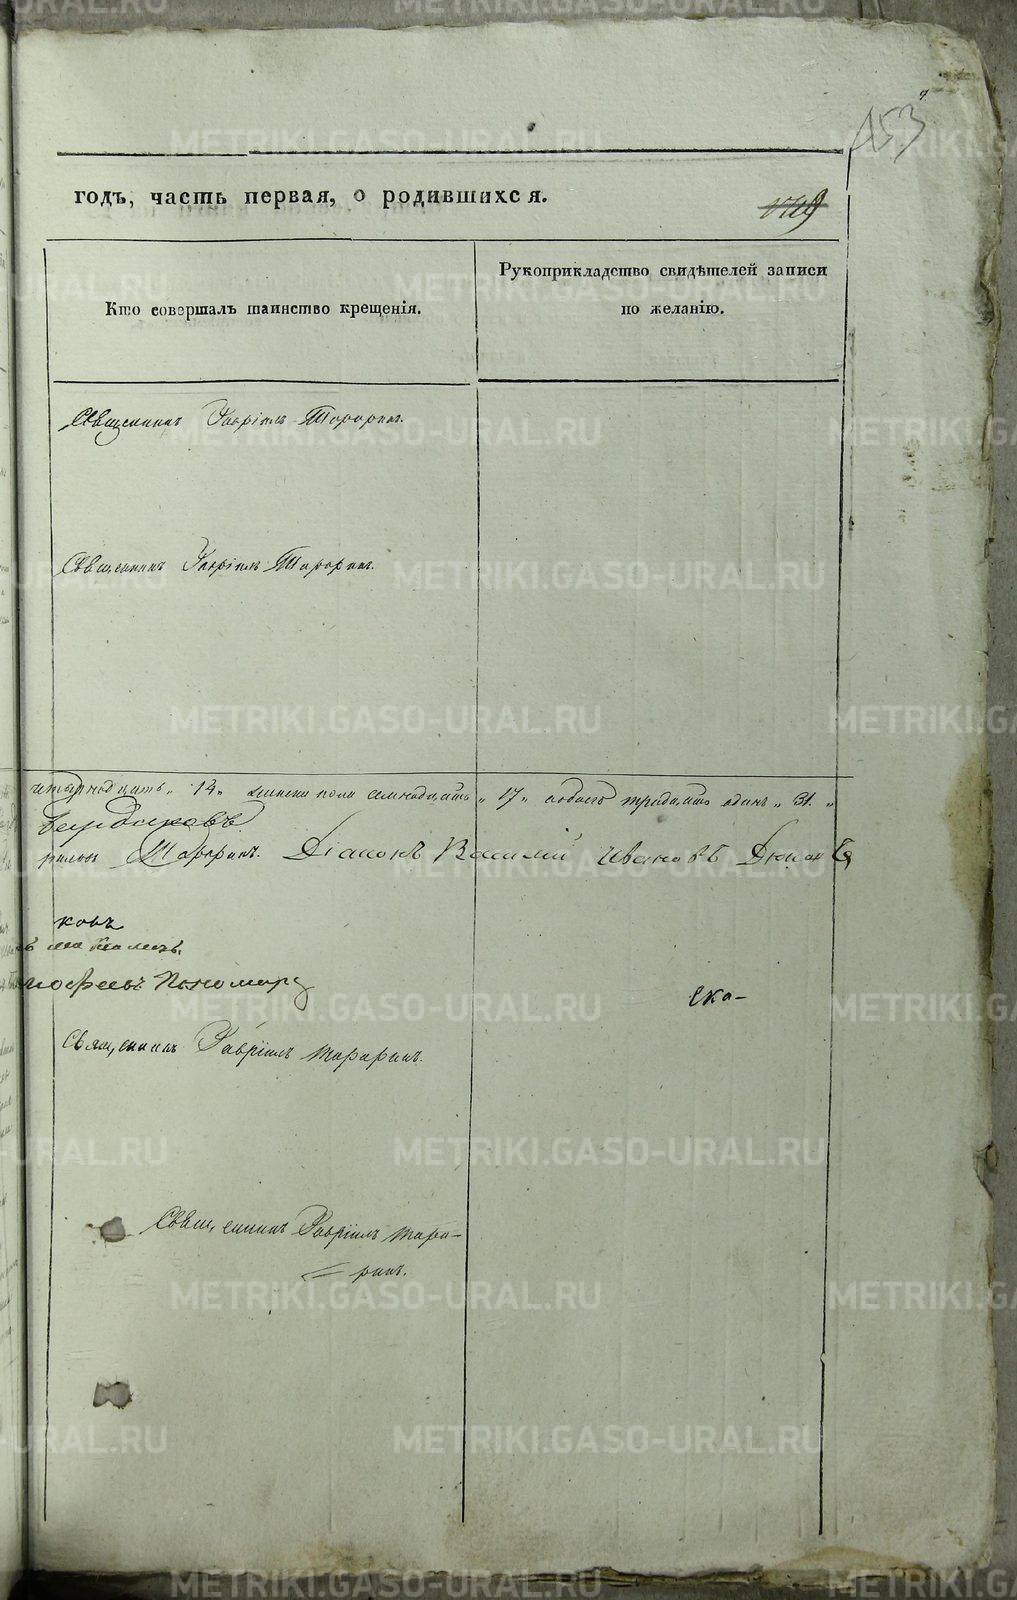 153
годъ, часть первая, о родившихся.
Кто совершалъ таинство крещенія.
Рукоприкладство свидѣтелей записи
по желанію.
Священникъ Гавріилъ Тараринъ.
Священникъ Гавріилъ Тараринъ.
четырнадцать „ 14 „ женска пола семнадцать „ 17 „ обоего тридцать одинъ „ 31. „
Тараринъ. Діаконъ Василій Ивановъ
ковъ
Пономарь
ска-
Священникъ Гавріилъ Тараринъ.
Священникъ Гавріилъ Тара-
ринъ.
METRIKI.GASO-URAL.RU